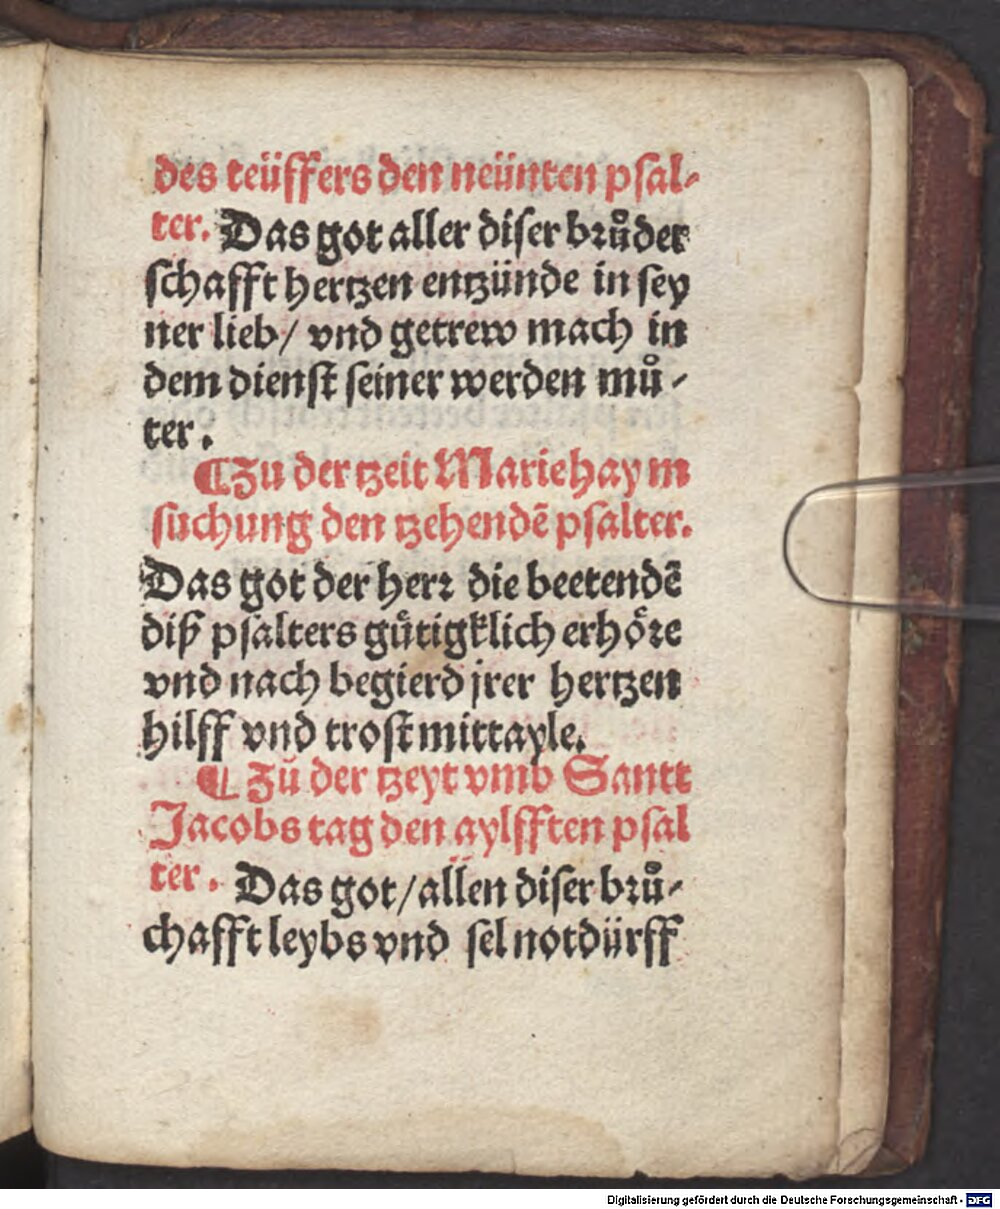 des teüffers den neünten psal-
ter. Das got aller diser brůder
schafft hertzen entzünde in sey
ner lieb/ vnd getrew mach in
dem dienst seiner werden mů-
ter.
¶Zu der tzeit Marie haym
suchung den tzehendē psalter.
Das got der herr die beetendē
diß psalters gůtigklich erhöre
vnd nach begierd jrer hertzen
hilff vnd trost mittayle.
¶ Zů der tzeyt vmb Santt
Jacobs tag den aylfften psal
ter. Das got/allen diser brů-
chafft leybs vnd sel notdürff
Digitalisierung gefördert durch die Deutsche Forschungsgemeinschaft - DFG